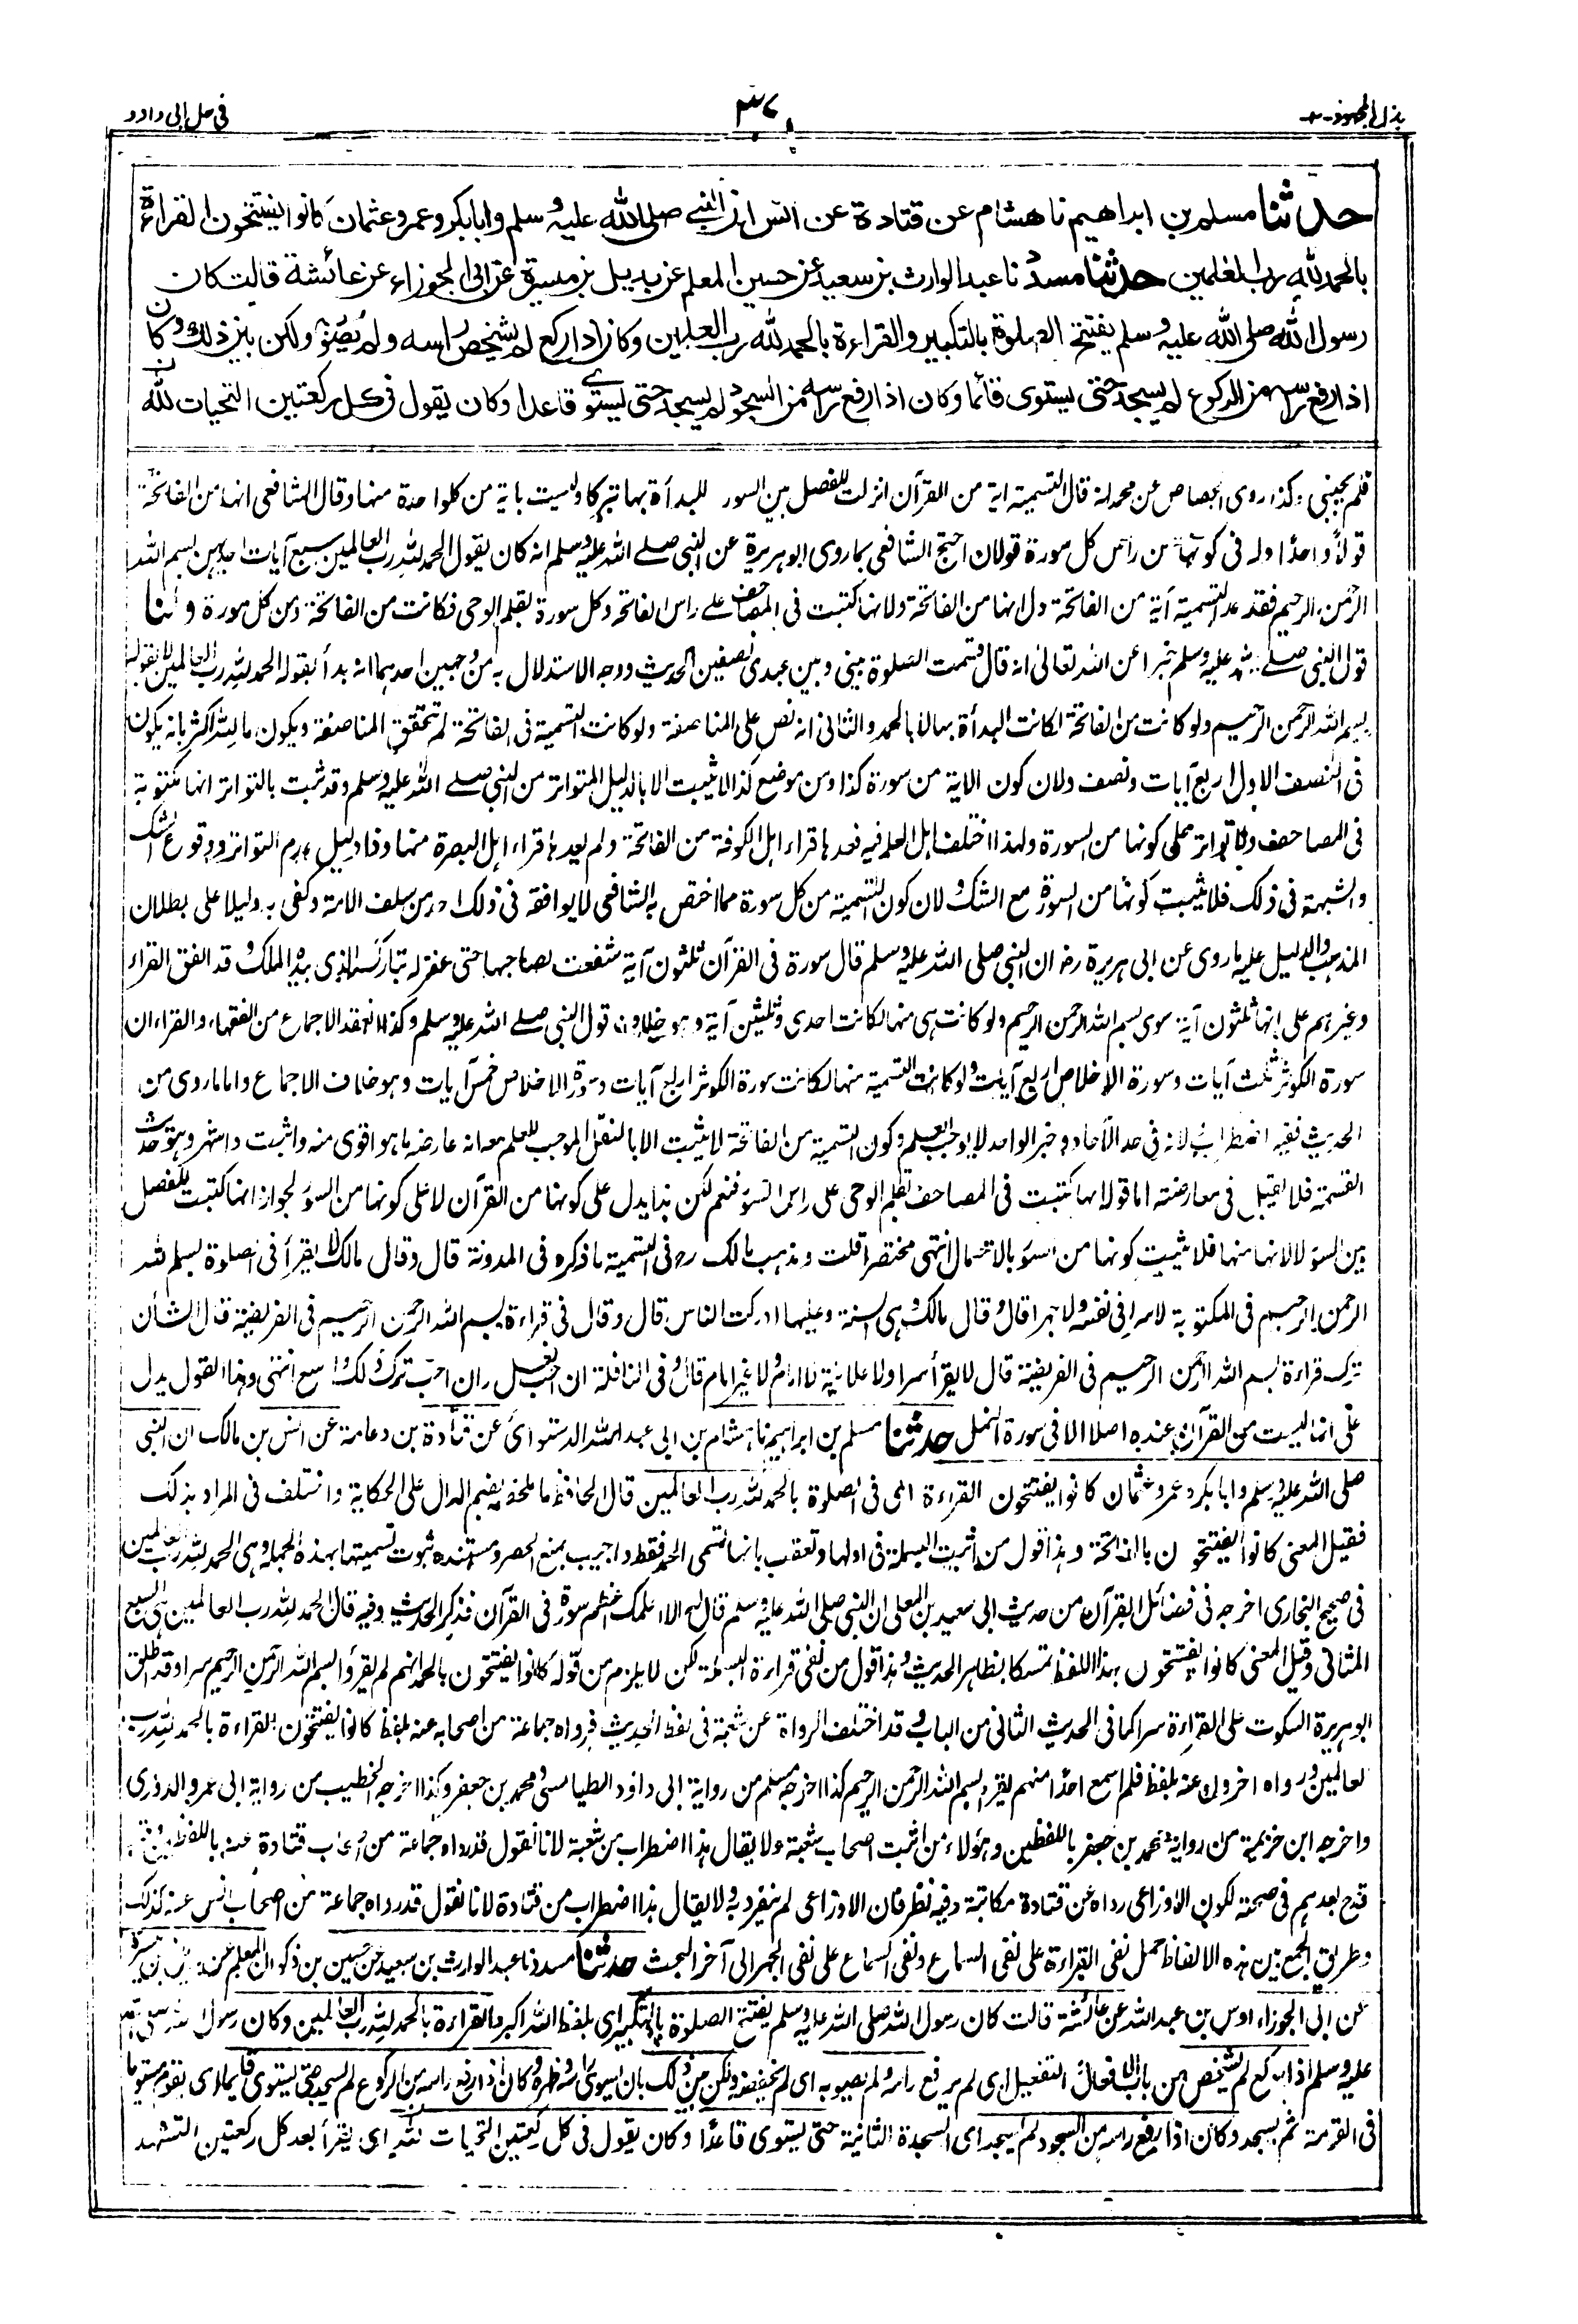 بذل المجهود-٢
٣٧
في حل ابى داود
حدثنا مسلم بن ابراهيم نا هشام عن قتادة عن انس ان النبي صلى الله عليه وسلم وابابكر وعمر وعثمان كانوا يفتتحون القراءة
بالحمد لله رب العلمين حدثنا مسدد نا عبد الوارث بن سعيد عن حسين المعلم عن بديل بن ميسرة عن ابى الجوزاء عن عائشة قالت كان
رسول الله صلى الله عليه وسلم يفتتح الصلوة بالتكبير والقراءة بالحمد لله رب العلمين وكان اذا ركع لم يشخص راسه ولم يصوبه ولكن بين ذلك وكان
اذا رفع راسه من الركوع لم يسجد حتى يستوى قائما وكان اذا رفع راسه من السجود لم يسجد حتى يستوي قاعدا وكان يقول في كل ركعتين التحيات لله
فلم يجبنى وكذا روى الجصاص عن محمد انه قال التسمية اية من القرآن انزلت للفصل بين السور للبدأة بها تبركا وليست باية من كل واحدة منها وقال الشافعى انها من الفاتحة
قولا واحدا وله فى كونها من رأس كل سورة قولان احتج الشافعى بما روى ابو هريرة عن النبى صلے الله عليه وسلم انه كان يقول الحمد لله رب العالمين سبع آيات احدٰهن بسم الله
الرحمن الرحيم فقد عد التسمية آية من الفاتحة دل انها من الفاتحة ولانها كتبت فى المصاحف على راس الفاتحة وكل سورة بقلم الوحى فكانت من الفاتحة ومن كل سورة ولنا
قول النبى صلے الله عليه وسلم خبرا عن الله تعالى انه قال قسمت الصلوة بينى وبين عبدى نصفين الحديث ووجه الاستدلال به من وجهين احدهما انه بدأ بقوله الحمد لله رب العالمين لا بقوله
بسم الله الرحمن الرحيم ولو كانت من الفاتحة لكانت البدأة بها لا بالحمد والثانى انه نص على المناصفة ولو كانت التسمية فى الفاتحة لم تتحقق المناصفة ويكون ما لله اكثر بانه يكون
فى النصف الاول اربع آيات ونصف ولان كون الاية من سورة كذا ومن موضع كذا لا يثبت الا بالدليل المتواتر من النبى صلے الله عليه وسلم وقد ثبت بالتواتر انها مكتوبة
فى المصاحف ولا تواتر على كونها من السورة ولهذا اختلف اهل العلم فيه فعدها قراء اهل الكوفة من الفاتحة ولم يعدها قراء اهل البصرة منها وذا دليل عدم التواتر ووقوع الشك
والشبهة فى ذلك فلا يثبت كونها من السورة مع الشك ولان كون التسمية من كل سورة مما اختص به الشافعى لا يوافقه فى ذلك احد من سلف الامة وكفى به دليلا على بطلان
المذهب والدليل عليه ما روى عن ابى هريرة رض ان النبى صلى الله عليه وسلم قال سورة فى القرآن ثلثون آية شفعت لصاحبها حتى غفر له تبارك الذى بيده الملك وقد اتفق القراء
وغيرهم على انها ثلثون آية سوى بسم الله الرحمن الرحيم ولو كانت هى منها لكانت احدى وثلثين آية وهو خلاف قول النبى صلے الله عليه وسلم وكذا انعقد الاجماع من الفقهاء والقراء ان
سورة الكوثر ثلث آيات وسورة الاخلاص اربع آيات ولو كانت التسمية منها لكانت سورة الكوثر اربع آيات وسورة الاخلاص خمس آيات وهو خلاف الاجماع واما ما روى من
الحديث ففيه اضطراب لانه فى حد الآحاد وخبر الواحد لا يوجب العلم وكون التسمية من الفاتحة لا يثبت الا بالنقل الموجب للعلم مع انه عارضه ما هو اقوى منه واثبت واشهر وهو حديث
القسمة فلا يقبل فى معارضته اما قوله انها كتبت فى المصاحف بقلم الوحى على راس السور فنعم لكن هذا يدل على كونها من القرآن لا على كونها من السور لجواز انها كتبت للفصل
بين السور لا لانها منها فلا يثبت كونها من السور بالاحتمال انتهى مختصرا قلت ومذهب مالك رح فى التسمية ما ذكره فى المدونة قال وقال مالك لا يقرأ فى الصلوة بسم الله
الرحمن الرحيم فى المكتوبة لا سرا فى نفسه ولا جهرا قال وقال مالك وهى السنة وعليها ادركت الناس قال وقال فى قراءة بسم الله الرحمن الرحيم فى الفريضة قال الشأن
ترك قراءة بسم الله الرحمن الرحيم فى الفريضة قال لا يقرأ سرا ولا علانية لا امام ولا غير امام قال وفى النافلة ان احب فعل وان احب ترك ذلك واسع انتهى وهذا القول يدل
على انها ليست من القرآن عنده اصلا الا فى سورة النمل حدثنا مسلم بن ابراهيم نا هشام بن ابى عبد الله الدستوائى عن قتادة بن دعامة عن انس بن مالك ان النبى
صلى الله عليه وسلم وابا بكر وعمر وعثمان كانوا يفتتحون القراءة اى فى الصلوة بالحمد لله رب العالمين قال الحافظ ما ملخصه بضم الدال على الحكاية واختلف فى المراد بذلك
فقيل المعنى كانوا يفتتحون بالفاتحة وهذا قول من اثبت البسملة فى اولها وتعقب بانها تسمى الحمد فقط واجيب بمنع الحصر ومستنده ثبوت تسميتها بهذه الجملة وهى الحمد لله رب العالمين
فى صحيح البخارى اخرجه فى فضائل القرآن من حديث ابى سعيد بن المعلى ان النبى صلى الله عليه وسلم قال له الا اعلمك اعظم سورة فى القرآن فذكر الحديث وفيه قال الحمد لله رب العالمين هى السبع
المثانى وقيل المعنى كانوا يفتتحون بهذا اللفظ تمسكا بظاهر الحديث وهذا قول من نفى قراءة البسملة لكن لا يلزم من قوله كانوا يفتتحون بالحمد انهم لم يقرؤا بسم الله الرحمن الرحيم سرا وقد اطلق
ابو هريرة السكوت على القراءة سرا كما فى الحديث الثانى من الباب وقد اختلف الرواة عن شعبة فى لفظ الحديث فرواه جماعة من اصحابه عنه بلفظ كانوا يفتتحون القراءة بالحمد لله رب
العالمين ورواه اخرون عنه بلفظ فلم اسمع احدا منهم يقرء بسم الله الرحمن الرحيم كذا اخرجه مسلم من رواية ابى داود الطيالسى ومحمد بن جعفر وكذا اخرجه الخطيب من رواية ابى عمرو الدورى
واخرجه ابن خزيمة من رواية محمد بن جعفر باللفظين وهؤلاء من اثبت اصحاب شعبة ولا يقال هذا اضطراب من شعبة لانا نقول قد رواه جماعة من اصحاب قتادة عنه باللفظين
قدح بعضهم فى صحته لكون الاوزاعى رواه عن قتادة مكاتبة وفيه نظر فان الاوزاعى لم ينفرد به ولا يقال هذا اضطراب من قتادة لانا نقول قد رواه جماعة من اصحاب انس عنه كذلك
وطريق الجمع بين هذه الالفاظ حمل نفى القراءة على نفى السماع ونفى السماع على نفى الجهر الى آخر البحث حدثنا مسدد نا عبد الوارث بن سعيد عن حسين بن ذكوان المعلم عن بديل بن ميسرة
عن ابى الجوزاء اوس بن عبد الله عن عائشة قالت كان رسول الله صلى الله عليه وسلم يفتتح الصلوة بالتكبير اى بلفظ الله اكبر والقراءة بالحمد لله رب العالمين وكان رسول الله صلى الله
عليه وسلم اذا ركع لم يشخص من باب الافعال او التفعيل اى لم يرفع راسه ولم يصوبه اى لم يخفضه ولكن بين ذلك بان يسوى راسه وظهره وكان اذا رفع راسه من الركوع لم يسجد حتى يستوى قائما اى يقوم مستويا
فى القومة ثم يسجد وكان اذا رفع راسه من السجود لم يسجد اى السجدة الثانية حتى يستوى قاعدا وكان يقول فى كل ركعتين التحيات لله اى يقرأ بعد كل ركعتين التشهد